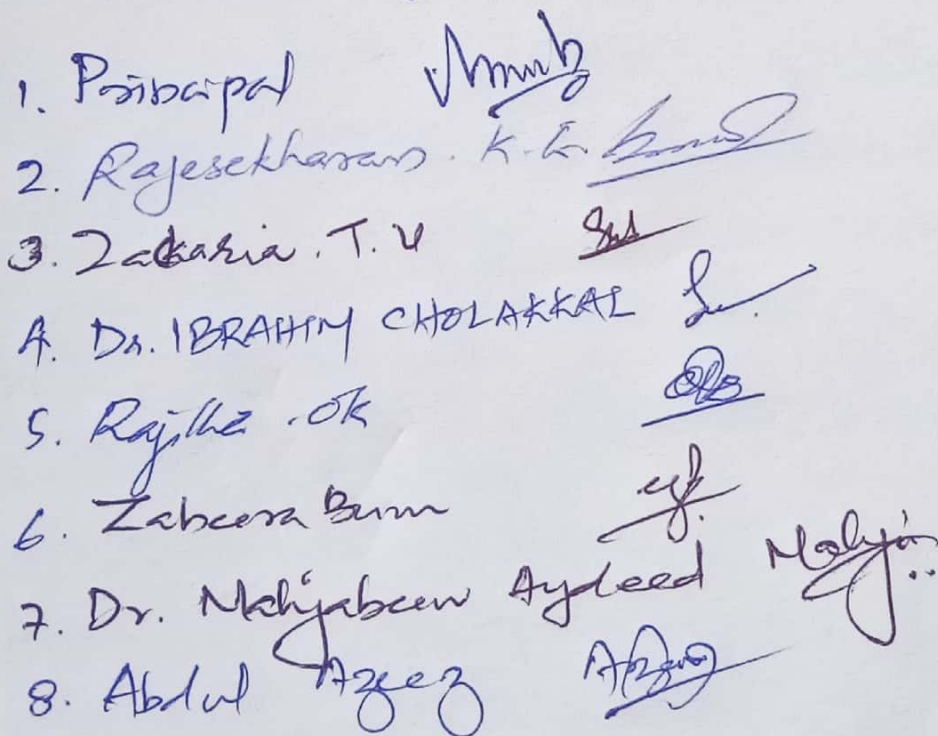 1. Principal
2. Rajesekharan. K.E.
3. Zakaria. T.V
4. Dr. IBRAHIM CHOLAKKAL
5. Rajitha .OK
6. Zabeera Banu
7. Dr. Mahjabeen Aydeed
8. Abdul Azeez